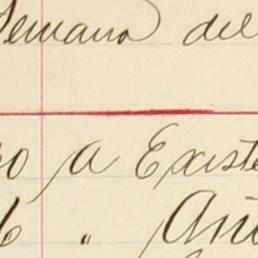 Semana del
a Existe
6 " Añi